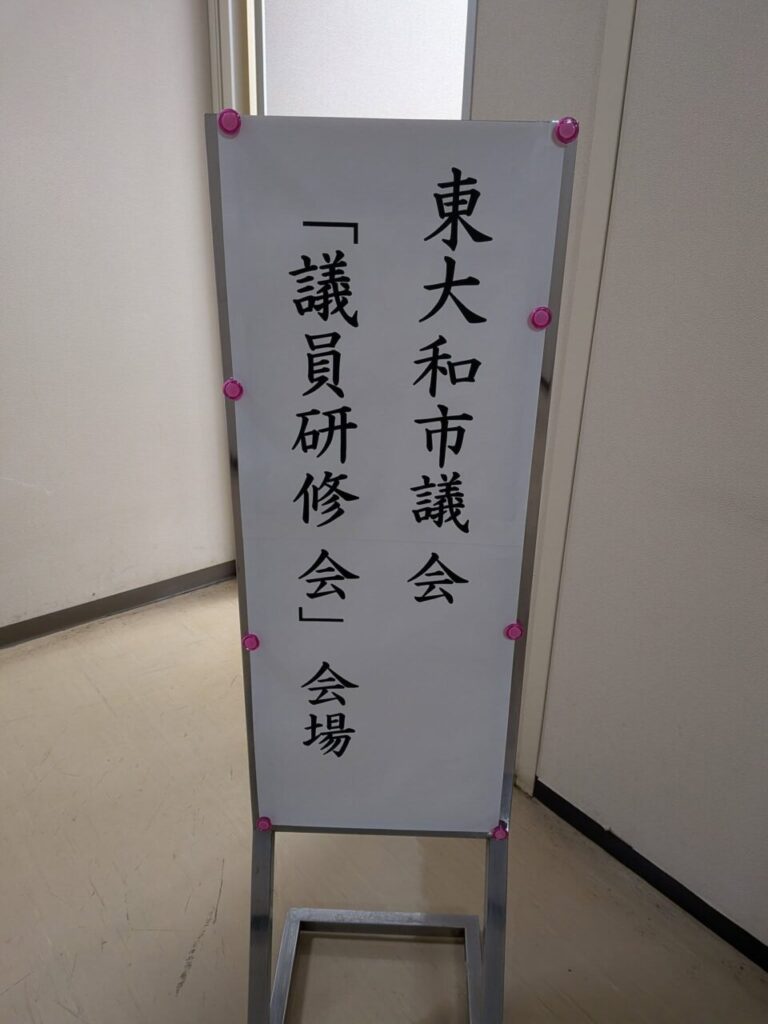 東大和市議会
「議員研修会」会場